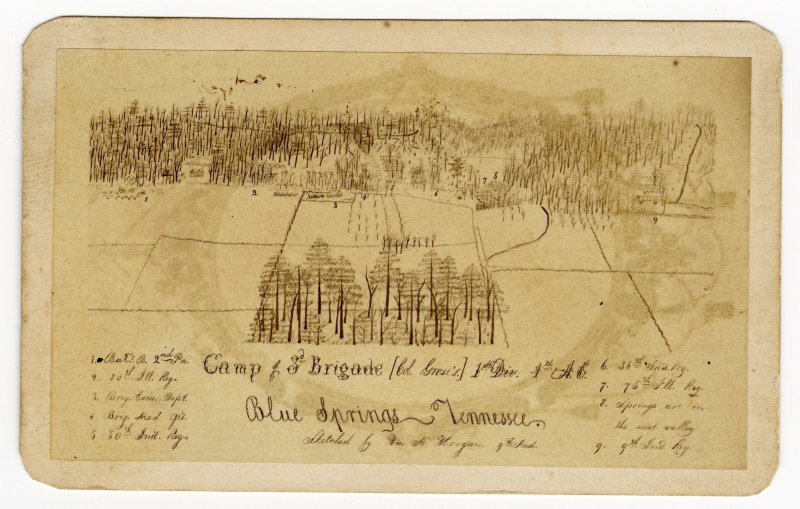 1 2 3 4 5 6 7 8 9
1. Bat. B. 2nd Pa.
2. 80th Ill. Reg.
3. Brig. Com. Dept.
4. Brig. Head Qrs.
5 30th Ind. Reg.
Camp of 3d Brigade [Col. Grose's] 1st Div. 4th A.C.
Blue Springs Tennessee.
Sketched by Wm H. Morgan. 9th Ind.
6. 36th Ind. Reg.
7. 75th Ill. Reg.
8. Springs are in
the next valley
9. 9th Ind. Reg.